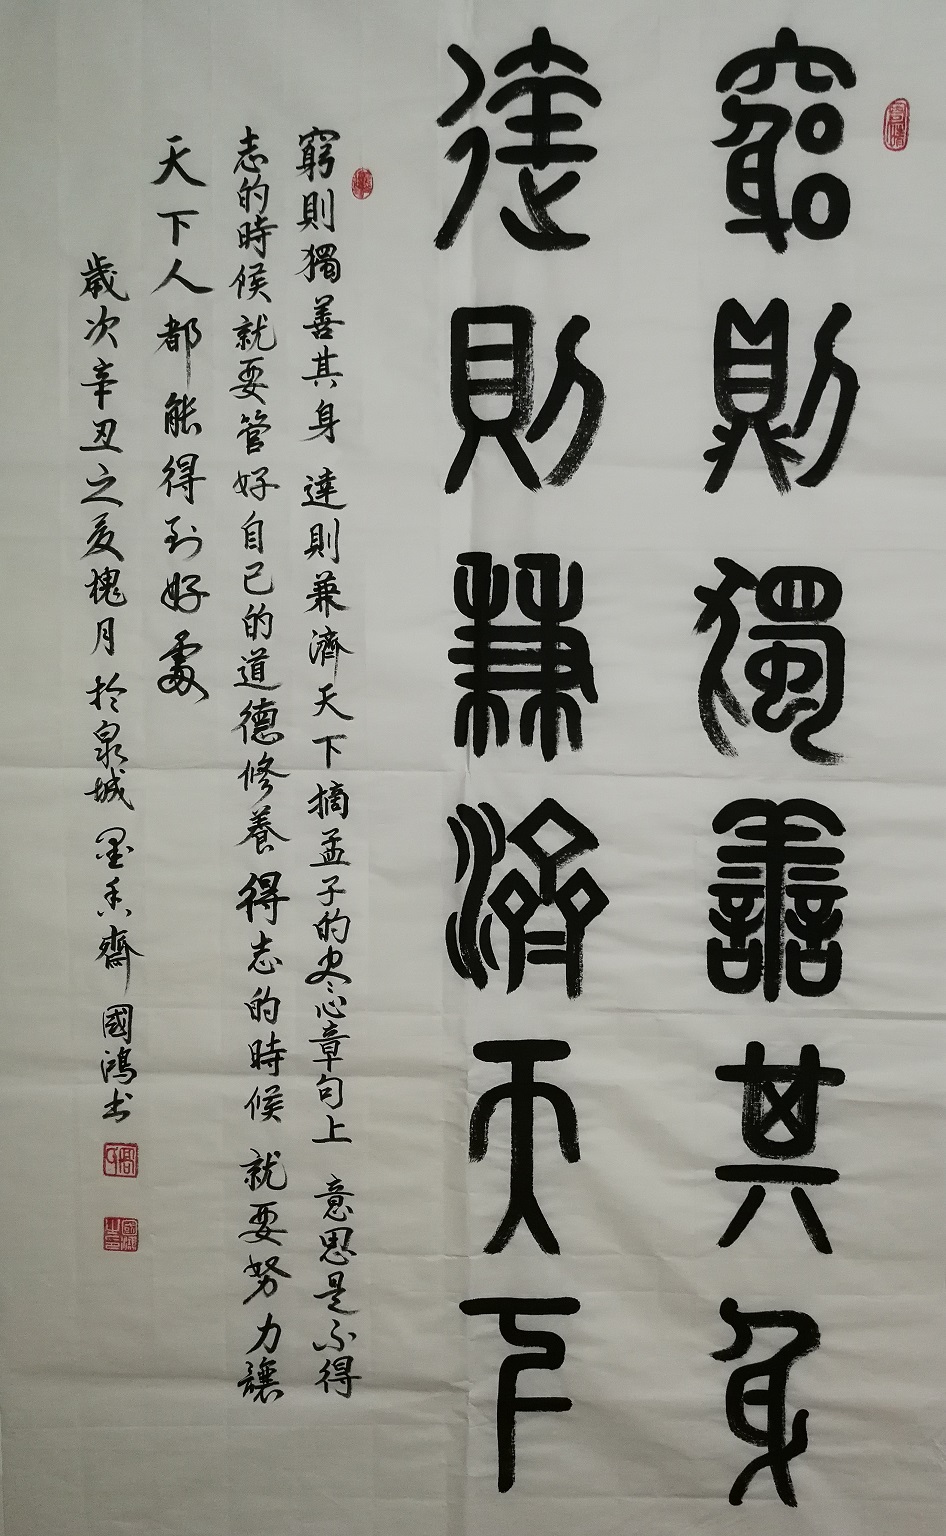 窮則獨善其身
達則兼濟天下
窮則獨善其身 達則兼濟天下 摘孟子的尽心章句上 意思是不得
志的時候就要管好自己的道德修養 得志的時候 就要努力讓
天下人都能得到好處
歲次辛丑之夏槐月 於泉城 墨香齋 國鴻书